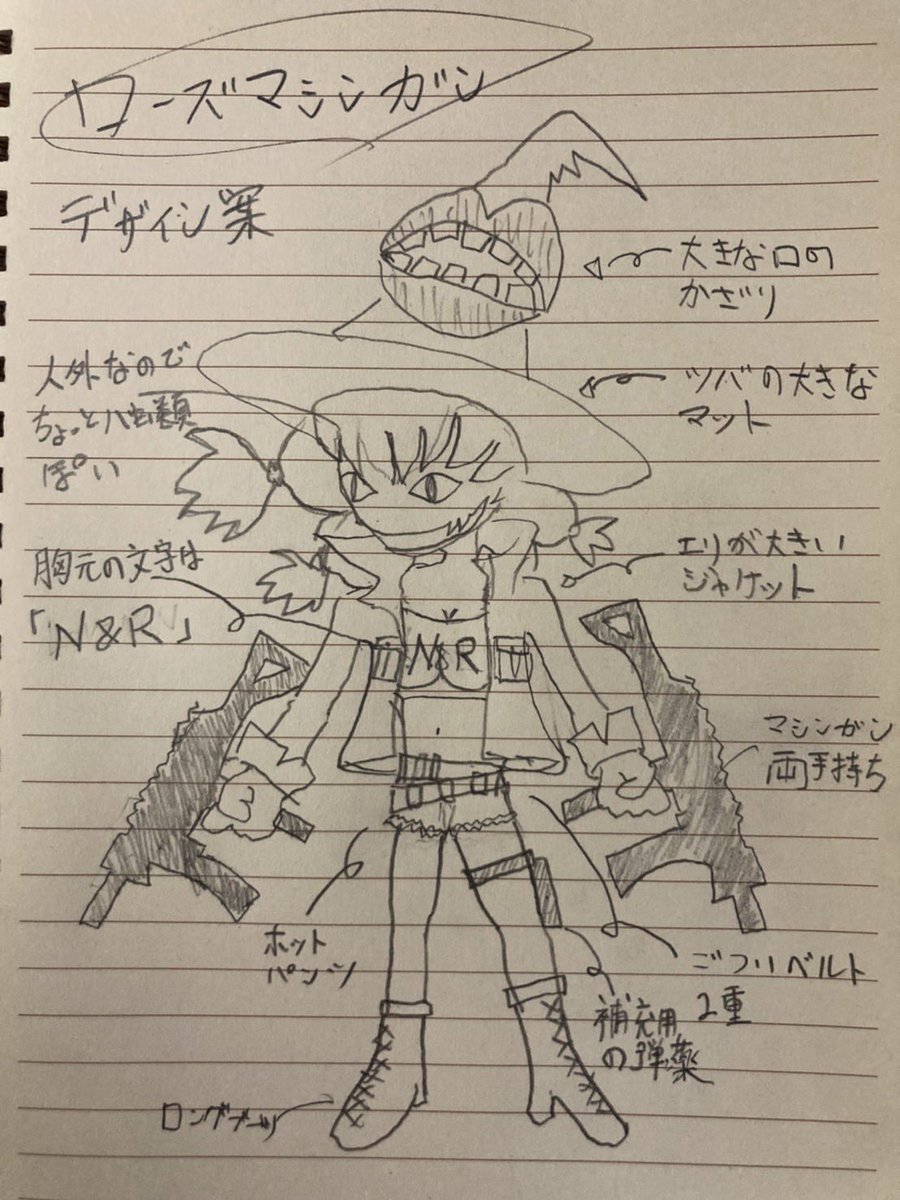 ローズマシンガン
デザイン案
大きな口の
かざり
人外なので
ちょっとハ虫類
ぽい
ツバの大きな
マット
胸元の文字は
「N&R」
エリが大きい
ジャケット
N&R
マシンガン
両手持ち
ホット
パンツ
ごついベルト
2重
補充用
の弾薬
ロングブーツ